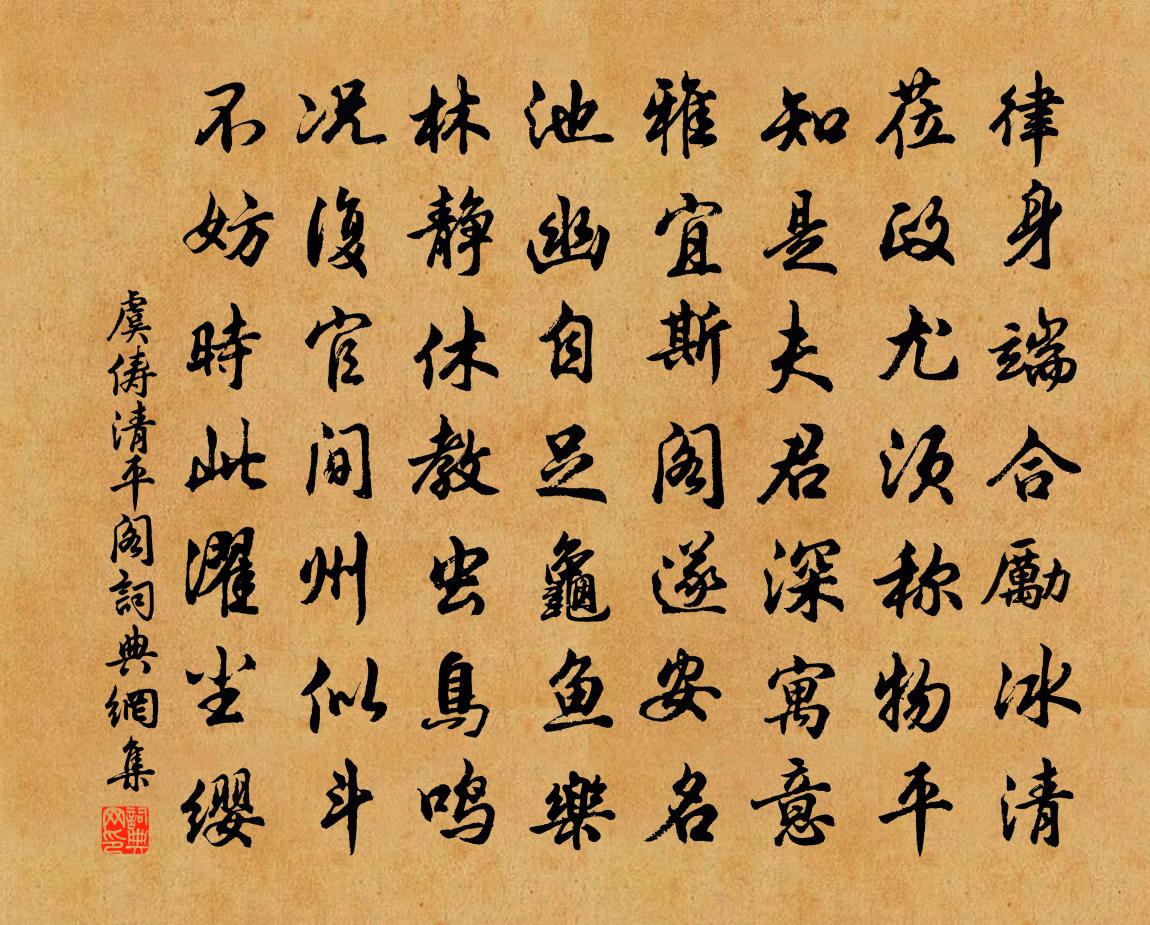 律身端合厲冰清
莅政尤須称物平
知是夫君深寓意
雅宜斯阁遂安名
池幽自足龜鱼樂
林静休教虫鳥鸣
况復官间州似斗
不妨時此濯尘缨
虞俦清平阁詞典網集
詞典网印